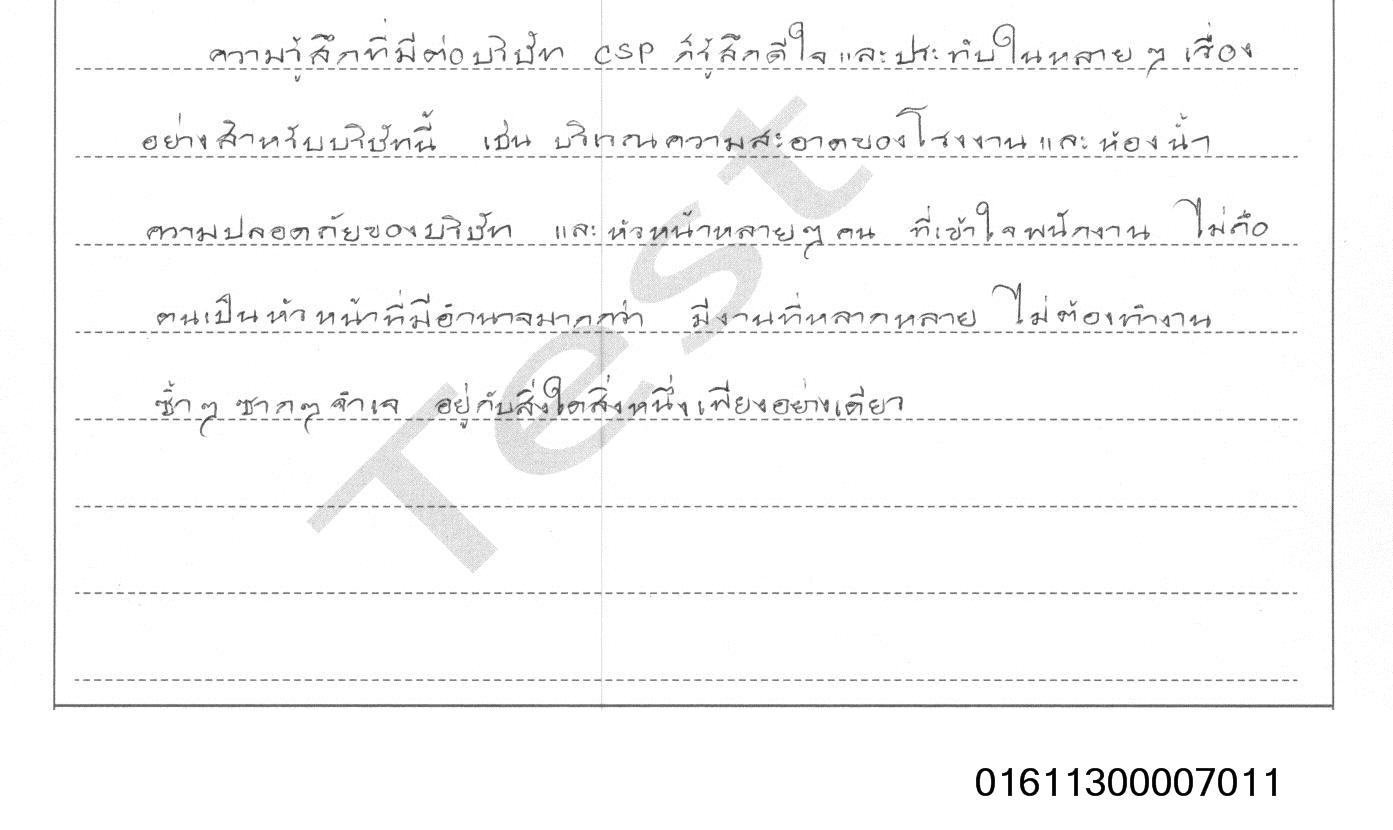 ความรู้สึกที่มีต่อบริษัท CSP ก็รู้สึกดีใจและประทับในหลายๆ เรื่อง
อย่างสำหรับบริษัทนี้ เช่น บริเวณความสะอาดของโรงงานและห้องน้ำ
ความปลอดภัยของบริษัท และหัวหน้าหลายๆ คน ที่เข้าใจพนักงาน ไม่ถือ
ตนเป็นหัวหน้าที่มีอำนาจมากกว่า มีงานที่หลากหลาย ไม่ต้องทำงาน
ซ้ำๆ ซากๆ จำเจ อยู่กับสิ่งใดสิ่งหนึ่งเพียงอย่างเดียว
Test
01611300007011